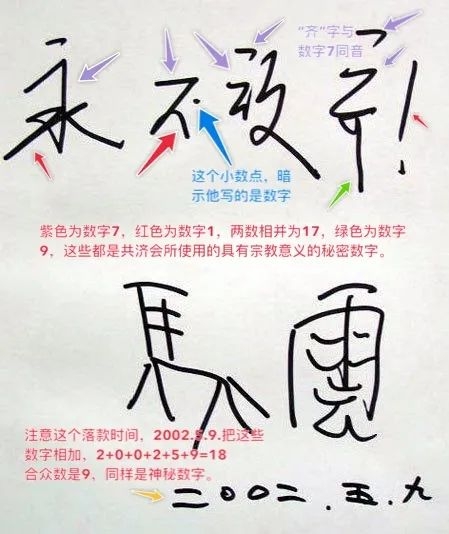 “齐”字与
数字7同音
永不放弃!
这个小数点，暗
示他写的是数字
紫色为数字7，红色为数字1，两数相并为17，绿色为数字
9，这些都是共济会所使用的具有宗教意义的秘密数字。
馬雲
注意这个落款时间，2002.5.9.把这些
数字相加，2+0+0+2+5+9=18
合众数是9，同样是神秘数字。
二00二.五.九